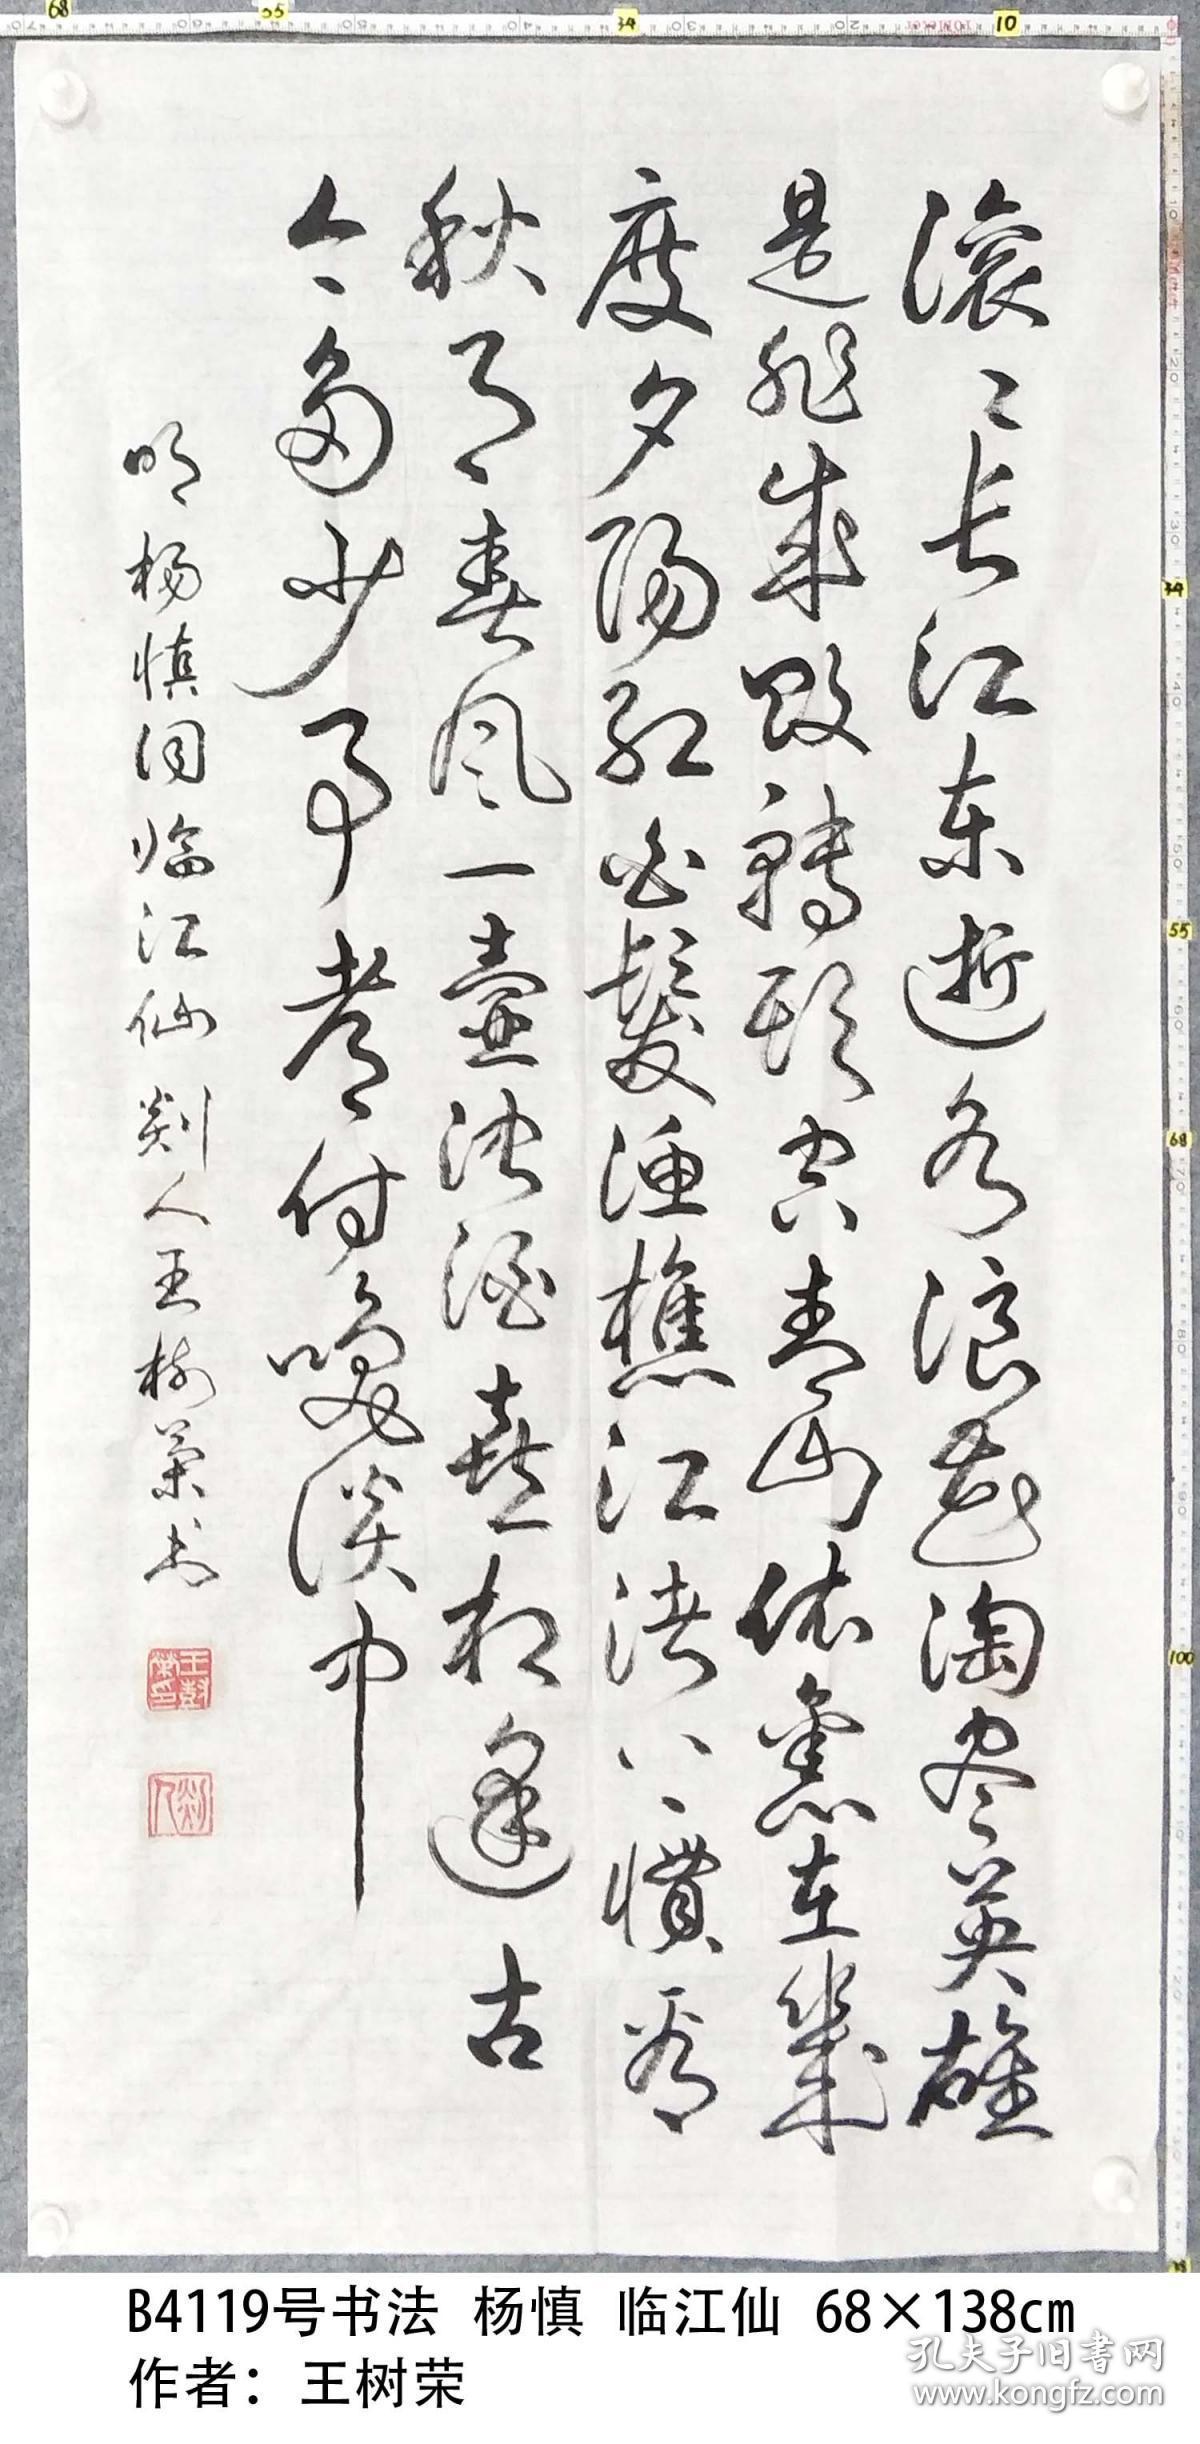 滚〻长江东逝水浪花淘尽英雄
是非成败转头空青山依旧在几
度夕阳红白发渔樵江渚上惯看
秋月春风一壶浊酒喜相逢古
今多少事都付笑谈中
明杨慎词临江仙 剡人王树荣书
王树荣印
剡人
B4119号书法 杨慎 临江仙 68×138cm
作者：王树荣
孔夫子旧书网
www.kongfz.com